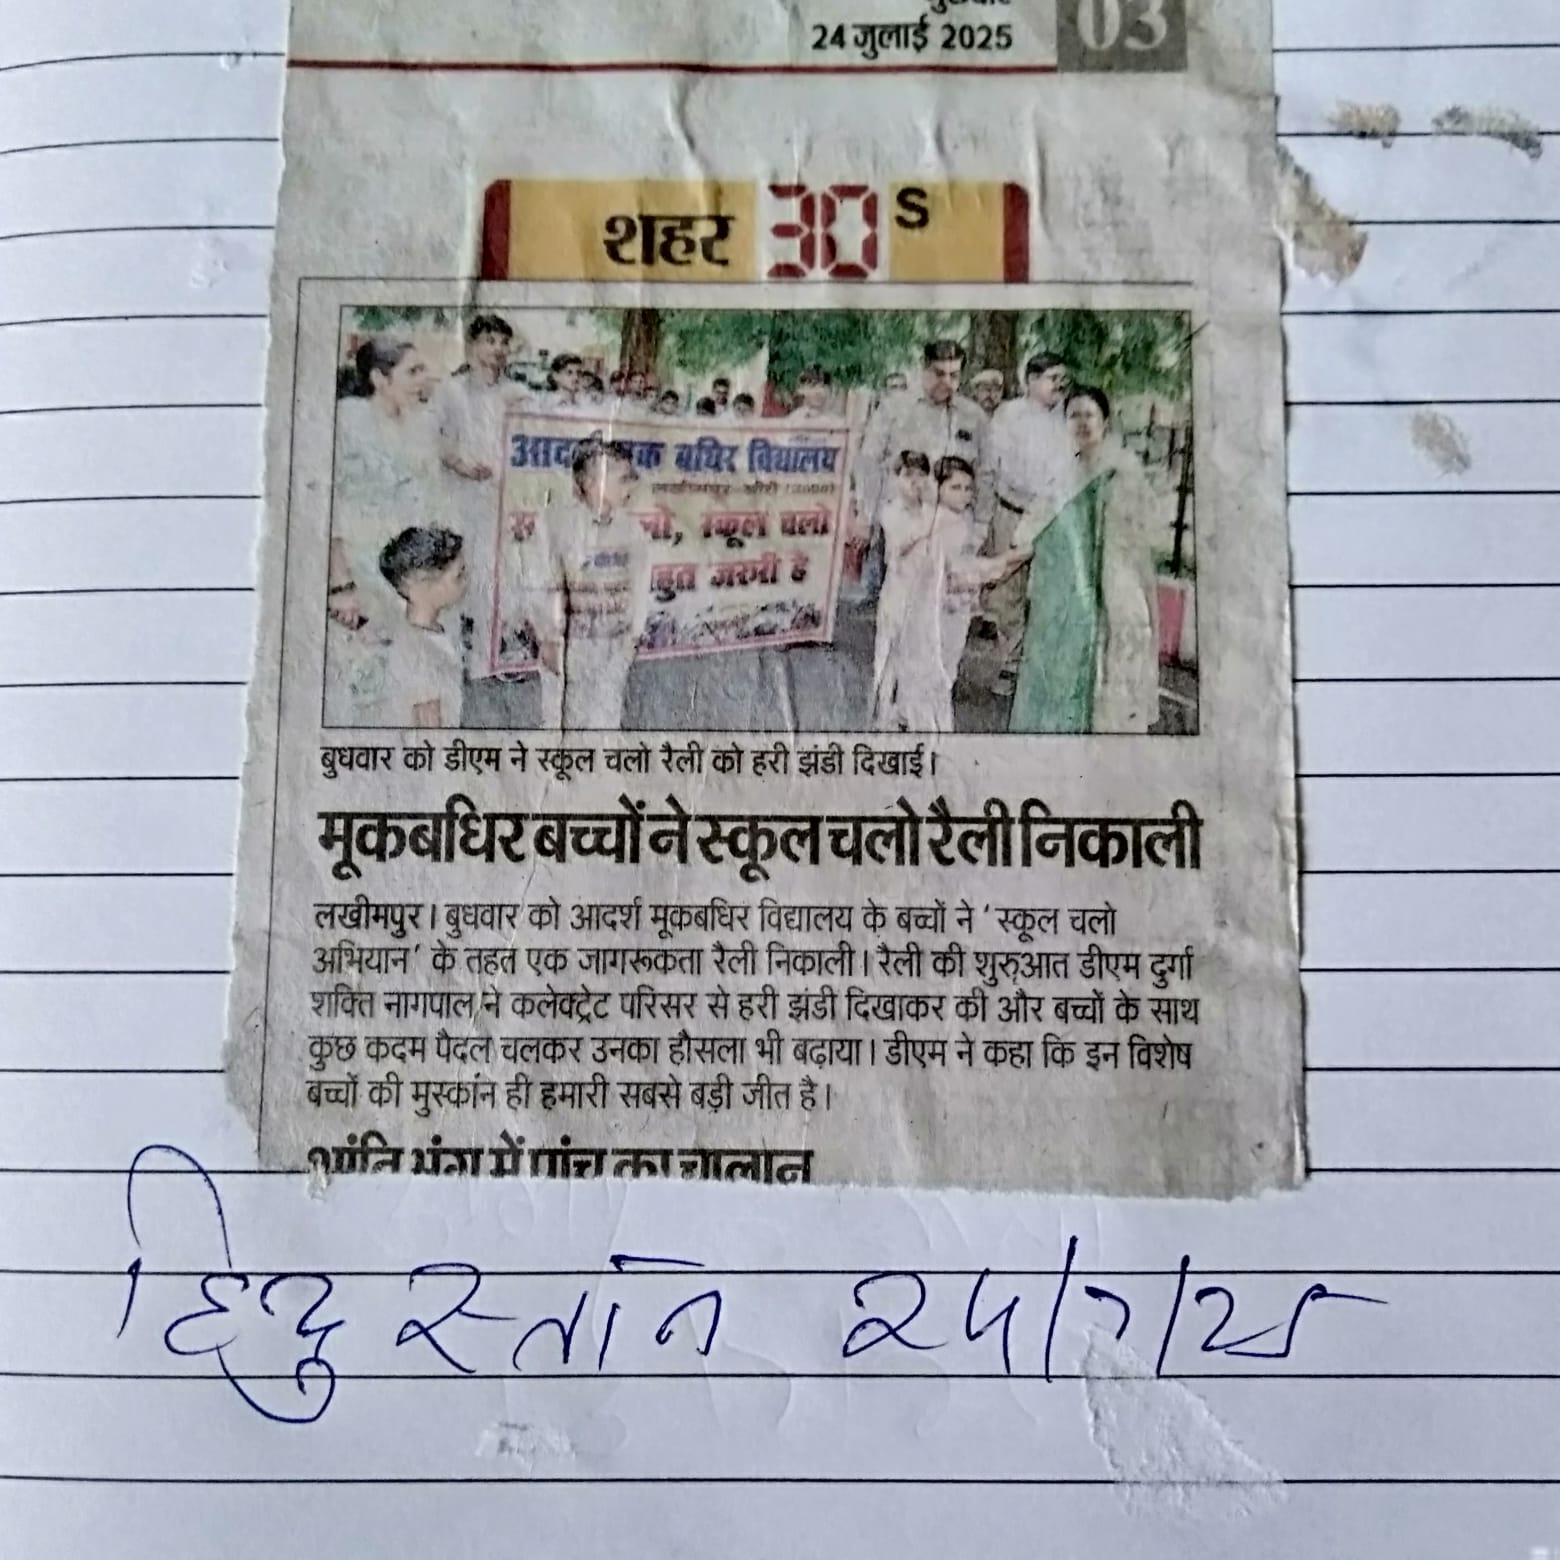 24 जुलाई 2025
03
शहर 30 S
बधिर विद्यालय
स्कूल चलो
जरुरी है
बुधवार को डीएम ने स्कूल चलो रैली को हरी झंडी दिखाई।
मूकबधिर बच्चों ने स्कूल चलो रैली निकाली
लखीमपुर। बुधवार को आदर्श मूकबधिर विद्यालय के बच्चों ने ‘स्कूल चलो
अभियान’ के तहत एक जागरूकता रैली निकाली। रैली की शुरुआत डीएम दुर्गा
शक्ति नागपाल ने कलेक्ट्रेट परिसर से हरी झंडी दिखाकर की और बच्चों के साथ
कुछ कदम पैदल चलकर उनका हौसला भी बढ़ाया। डीएम ने कहा कि इन विशेष
बच्चों की मुस्कान ही हमारी सबसे बड़ी जीत है।
शांति भंग में पांच का चालान
हिंदुस्तान